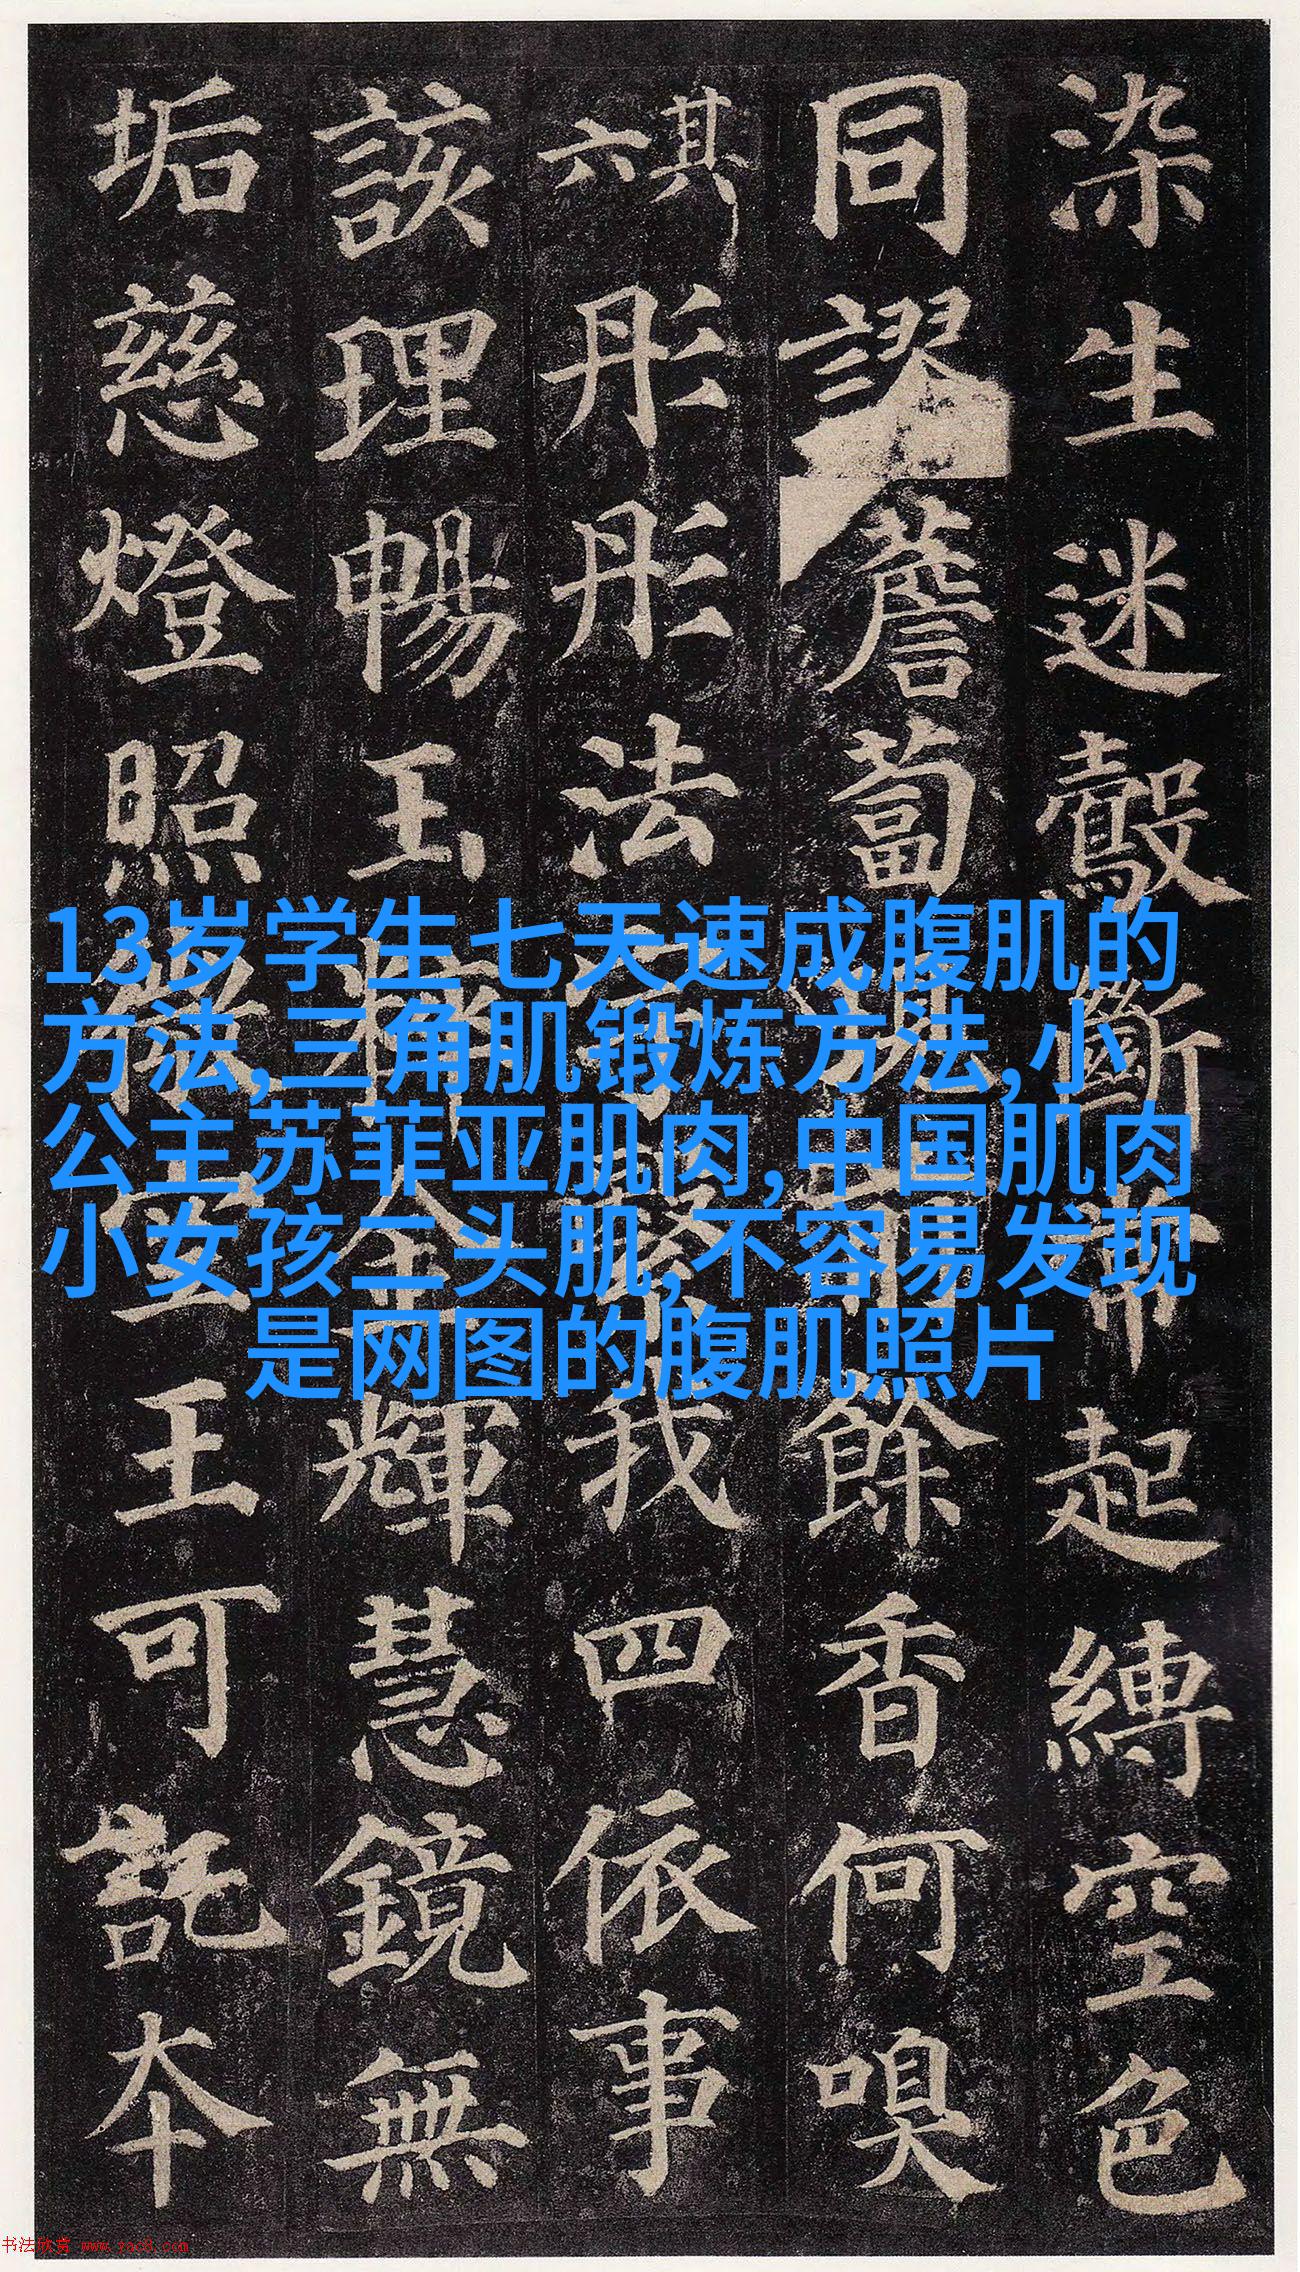 染生迷鷇斷常起縛空色
同謬薝蔔現前餘香何嗅
其六彤彤法宇繄我四依事
該理暢玉粹金輝慧鏡無
垢慈燈照微空王可託本
13岁学生七天速成腹肌的
方法,三角肌锻炼方法,小
公主苏菲亚肌肉,中国肌肉
小女孩二头肌,不容易发现
是网图的腹肌照片
书法欣赏 www.yac8.com